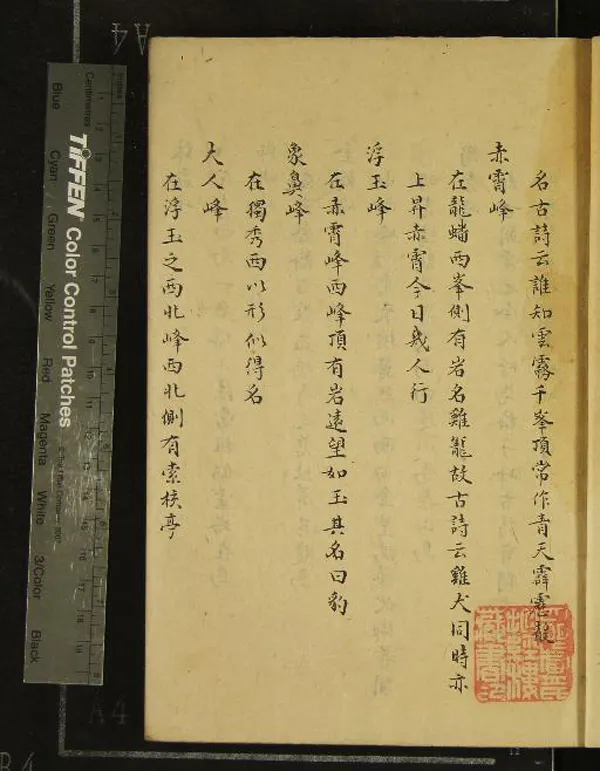 名古詩云誰知雲霧千峯頂常作青天霹靂聲
赤霄峰
在龍蟠西峯側有岩名雞籠故古詩云雞犬同時亦
上昇赤霄今日幾人行
浮玉峰
在赤霄峰西峰頂有岩遠望如玉其名曰豹
象鼻峰
在獨秀西以形似得名
大人峰
在浮玉之西北峰西北側有索棧亭
TIFFEN Color Control Patches
Centimetres
Inches
Blue
Cyan
Green
Yellow
Red
Magenta
White
3/Color
Black
A4
A4
B4